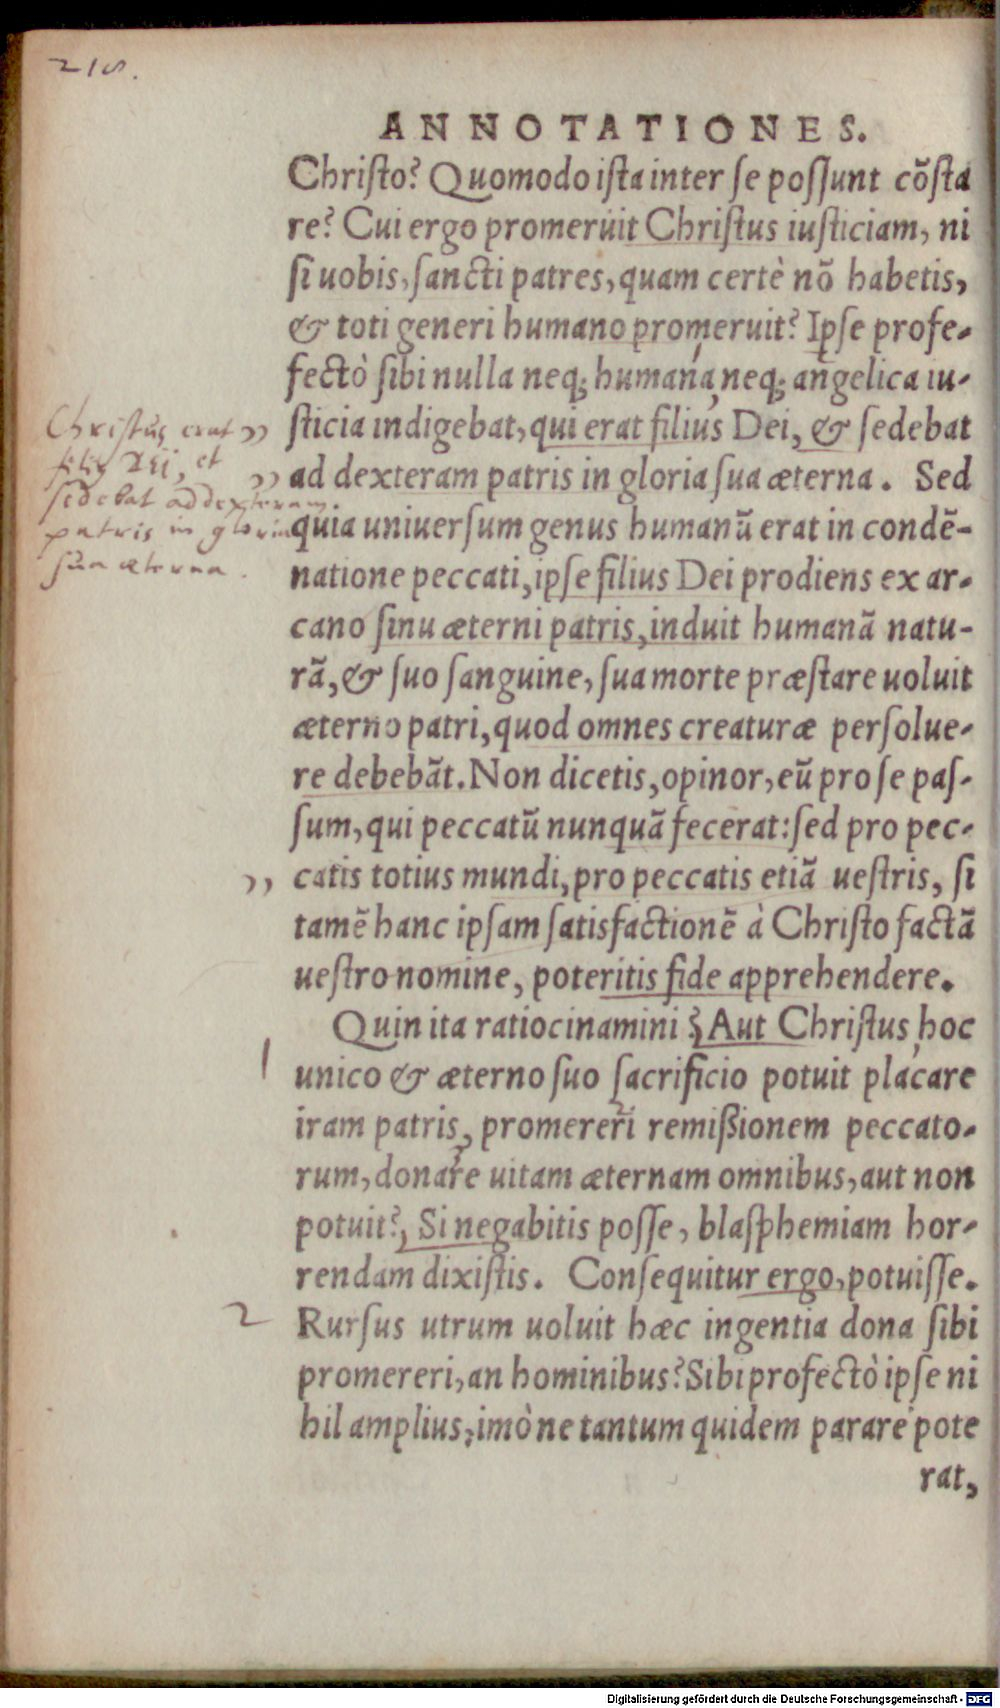 218.
ANNOTATIONES.
Christo? Quomodo ista inter se possunt cõsta
re? Cui ergo promeruit Christus iusticiam, ni
si uobis, sancti patres, quam certè nõ habetis,
& toti generi humano promeruit? Ipse profe-
fectò sibi nulla neq; humana, neq; angelica iu-
sticia indigebat, qui erat filius Dei, & sedebat
ad dexteram patris in gloria sua æterna. Sed
quia uniuersum genus humanũ erat in condẽ-
natione peccati, ipse filius Dei prodiens ex ar-
cano sinu æterni patris, induit humanã natu-
rã, & suo sanguine, sua morte præstare uoluit
æterno patri, quod omnes creaturæ persolue-
re debebãt. Non dicetis, opinor, eũ pro se pas-
sum, qui peccatũ nunquã fecerat: sed pro pec-
catis totius mundi, pro peccatis etiã uestris, si
tamẽ hanc ipsam satisfactionẽ à Christo factã
uestro nomine, poteritis fide apprehendere.
Quin ita ratiocinamini? Aut Christus hoc
unico & æterno suo sacrificio potuit placare
iram patris, promereri remißionem peccato-
rum, donare uitam æternam omnibus, aut non
potuit? Si negabitis posse, blasphemiam hor-
rendam dixistis. Consequitur ergo, potuisse.
Rursus utrum uoluit hæc ingentia dona sibi
promereri, an hominibus? Sibi profectò ipse ni
hil amplius, imò ne tantum quidem parare pote
rat,
Christus erat
et
sedebat ad dexteram
patris in gloria
sua æterna.
1
2
Digitalisierung gefördert durch die Deutsche Forschungsgemeinschaft - DFG